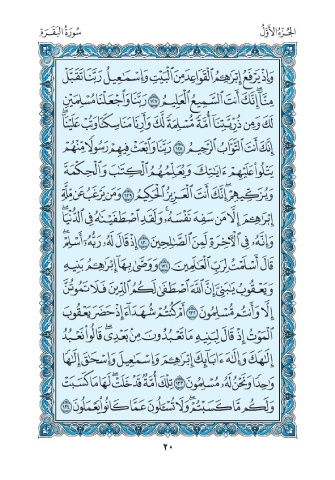 الجُزْءُ الأَوَّلُ سُورَةُ البَقَرَةِ
وَإِذْ يَرْفَعُ إِبْرَٰهِـۧمُ ٱلْقَوَاعِدَ مِنَ ٱلْبَيْتِ وَإِسْمَٰعِيلُ رَبَّنَا تَقَبَّلْ
مِنَّآ ۖ إِنَّكَ أَنتَ ٱلسَّمِيعُ ٱلْعَلِيمُ ١٢٧ رَبَّنَا وَٱجْعَلْنَا مُسْلِمَيْنِ
لَكَ وَمِن ذُرِّيَّتِنَآ أُمَّةً مُّسْلِمَةً لَّكَ وَأَرِنَا مَنَاسِكَنَا وَتُبْ عَلَيْنَآ ۖ
إِنَّكَ أَنتَ ٱلتَّوَّابُ ٱلرَّحِيمُ ١٢٨ رَبَّنَا وَٱبْعَثْ فِيهِمْ رَسُولًا مِّنْهُمْ
يَتْلُوا۟ عَلَيْهِمْ ءَايَٰتِكَ وَيُعَلِّمُهُمُ ٱلْكِتَٰبَ وَٱلْحِكْمَةَ
وَيُزَكِّيهِمْ ۚ إِنَّكَ أَنتَ ٱلْعَزِيزُ ٱلْحَكِيمُ ١٢٩ وَمَن يَرْغَبُ عَن مِّلَّةِ
إِبْرَٰهِـۧمَ إِلَّا مَن سَفِهَ نَفْسَهُۥ ۚ وَلَقَدِ ٱصْطَفَيْنَٰهُ فِى ٱلدُّنْيَا ۖ
وَإِنَّهُۥ فِى ٱلْءَاخِرَةِ لَمِنَ ٱلصَّٰلِحِينَ ١٣٠ إِذْ قَالَ لَهُۥ رَبُّهُۥٓ أَسْلِمْ ۖ
قَالَ أَسْلَمْتُ لِرَبِّ ٱلْعَٰلَمِينَ ١٣١ وَوَصَّىٰ بِهَآ إِبْرَٰهِـۧمُ بَنِيهِ
وَيَعْقُوبُ يَٰبَنِىَّ إِنَّ ٱللَّهَ ٱصْطَفَىٰ لَكُمُ ٱلدِّينَ فَلَا تَمُوتُنَّ
إِلَّا وَأَنتُم مُّسْلِمُونَ ١٣٢ أَمْ كُنتُمْ شُهَدَآءَ إِذْ حَضَرَ يَعْقُوبَ
ٱلْمَوْتُ إِذْ قَالَ لِبَنِيهِ مَا تَعْبُدُونَ مِنۢ بَعْدِى قَالُوا۟ نَعْبُدُ
إِلَٰهَكَ وَإِلَٰهَ ءَابَآئِكَ إِبْرَٰهِـۧمَ وَإِسْمَٰعِيلَ وَإِسْحَٰقَ إِلَٰهًا
وَٰحِدًا وَنَحْنُ لَهُۥ مُسْلِمُونَ ١٣٣ تِلْكَ أُمَّةٌ قَدْ خَلَتْ ۖ لَهَا مَا كَسَبَتْ
وَلَكُم مَّا كَسَبْتُمْ ۖ وَلَا تُسْـَٔلُونَ عَمَّا كَانُوا۟ يَعْمَلُونَ ١٣٤
٢٠